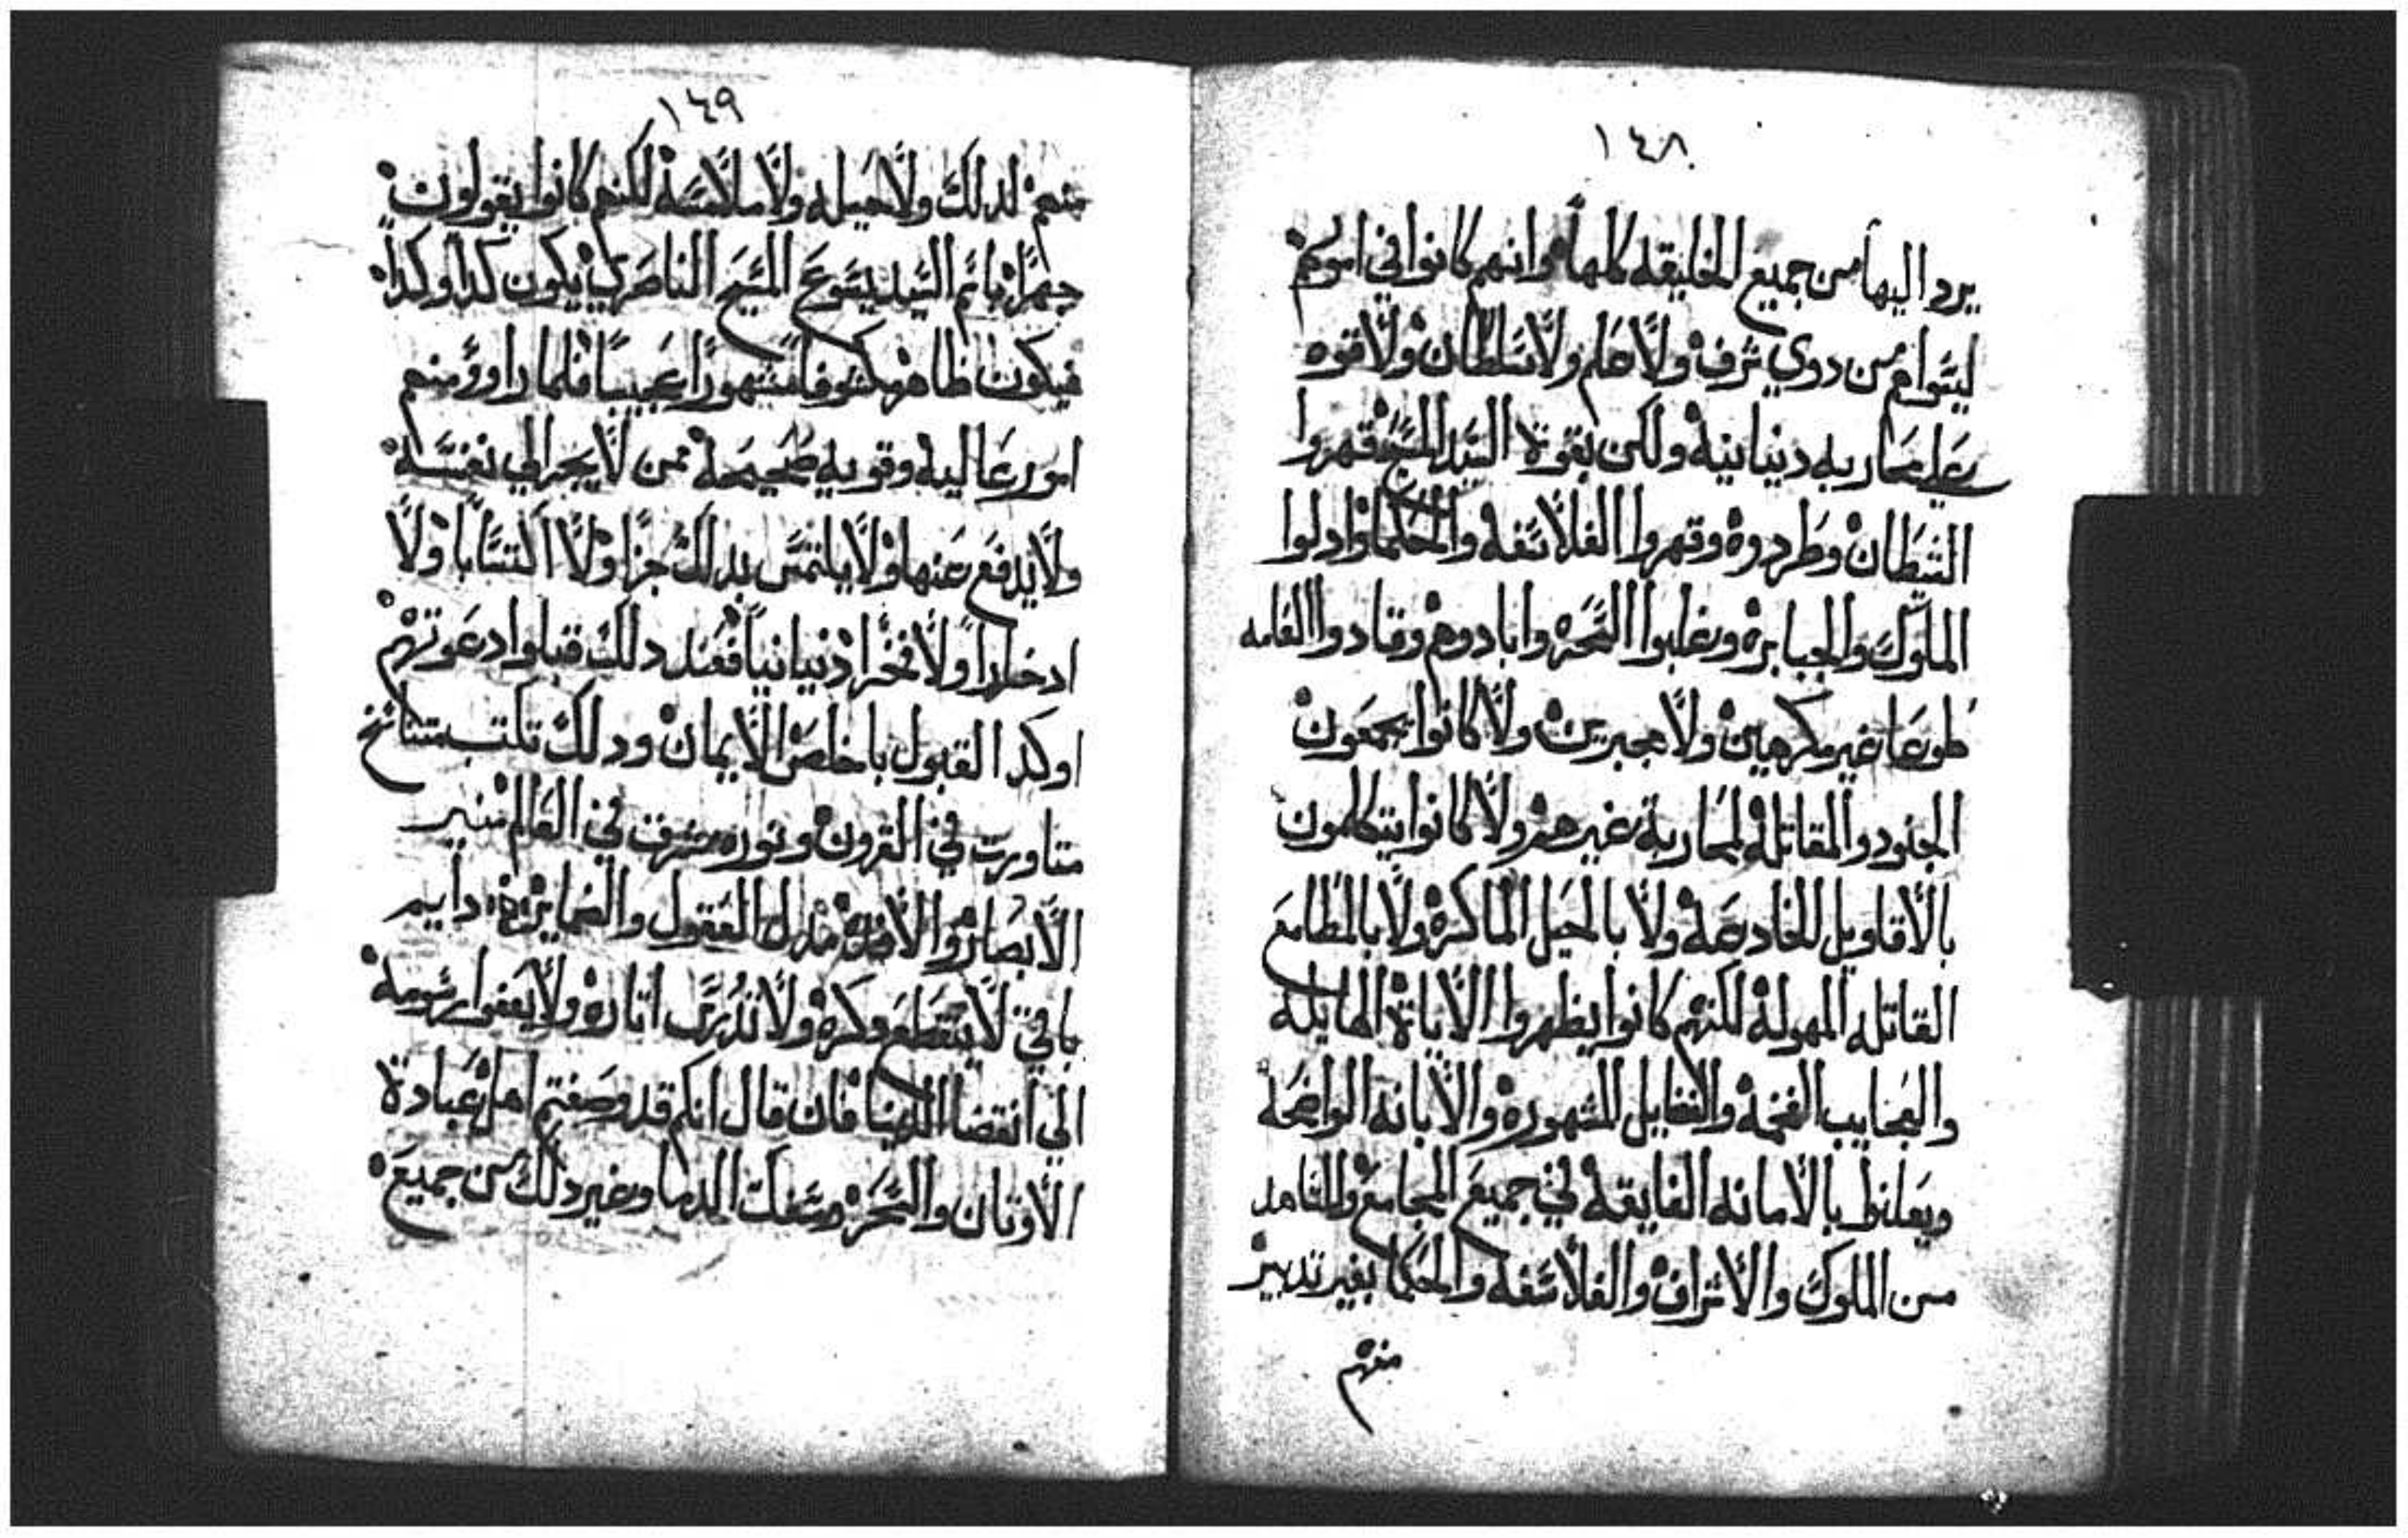 ١٤٨
يرد اليها من جميع الخليقه كلها وانهم كانوا في امورهم
ليسوا من دوي شرف ولا علم ولا سلطان ولا قوه
على محاربه دنيانيه ولكن بقوة السيد المسيح قهروا
الشيطان وطردوه وقهروا الفلاسفه والحكما وادلوا
الملوك والجبابره وغلبوا السحره وابادوهم وقادوا العامه
طوعا غير مكرهين ولا مجبرين ولا كانوا يجمعون
الجنود والمقاتله لمحاربة غيرهم ولا كانوا يتكلمون
بالاقاويل الخادعه ولا بالحيل الماكره ولا بالمطامع
القاتله المهوله لكنهم كانوا يظهروا الاياة الهايله
والعجايب الفخمه والفضايل المشهوره والابانه الواضحه
وبعلنظ بالامانه الفايقه في جميع المجامع والمشاهد
من الملوك والاشراف والفلاسفه والحكما بغير تدبير
منهم
١٤٩
منهم لدلك ولا حيله ولا ملامسه لكنهم كانوا يقولون
جهرا باسم السيد يسوع المسيح الناصري يكون كدا وكدا
فيكون ظاهر مكشوفا مشهورا عجيبا فلما راوو منهم
امور عاليه وقويه صحيحه ممن لا يجر الى نفسه
ولا يدفع عنها ولا يلتمس بدلك جزا ولا اكتسابا ولا
ادخارا ولا فخرا دنيانيا فعند دلك قبلوا دعوتهم
اوكد القبول باخلص الايمان ودلك تلتب ستناسخ
متاورت في القرون ونوره مشرق في العالم منير
الابصار والافاق العقول والضماير دايم
باقي لا ينقطع دكره ولا تدرس اتاره ولا يعفوا رسومه
الى انقضا الدنيا فان قال انكم قد وصفتم اهل عبادة
الاوتان والسحره وسفك الدما وغير دلك من جميع